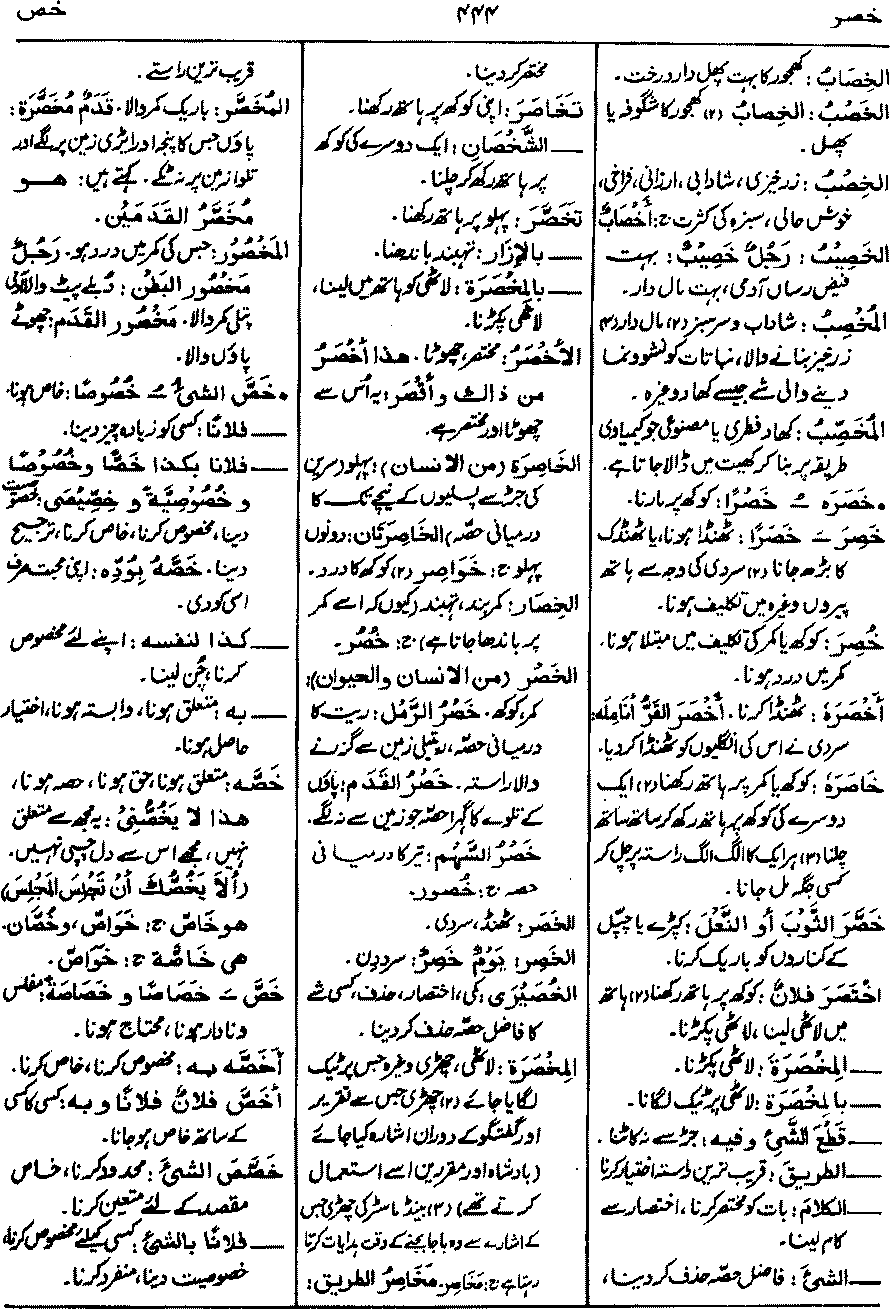 خصر ۴۴۴ خص
الخِصَابُ : کھجور کا بہت پھل دار درخت۔
الخَصْبُ : الخِصابُ (۲) کھجور کا شگوفہ یا
پھل۔
الخِصْبُ : زرخیزی، شادابی، ارزانی، فراخی،
خوش حالی، سبزہ کی کثرت ج: أَخْصَابٌ
الخَصِيبُ : رَجُلٌ خَصِيبٌ : بہت
فیض رساں آدمی، بہت مال دار۔
المُخْصِبُ : شاداب و سرسبز (۲) مال دار (۳)
زرخیز بنانے والا، نباتات کو نشوونما
دینے والی شے جیسے کھاد وغیرہ۔
المُخَصِّبُ : کھاد فطری یا مصنوعی جو کیمیاوی
طریقہ پر بنا کر کھیت میں ڈالا جاتا ہے۔
• خَصَرَه ُ خَصْرًا : کوکھ پر مارنا۔
خَصِرَ َ خَصَرًا : ٹھنڈا ہونا، یا ٹھنڈک
کا بڑھ جانا (۲) سردی کی وجہ سے ہاتھ
پیروں وغیرہ میں تکلیف ہونا۔
خُصِرَ : کوکھ یا کمر کی تکلیف میں مبتلا ہونا۔
کمر میں درد ہونا۔
أَخْصَرَهُ : ٹھنڈا کرنا۔ أَخْصَرَ القَرُّ أَنَامِلَه:
سردی نے اس کی انگلیوں کو ٹھنڈا کر دیا۔
خَاصَرَهُ : کوکھ یا کمر پر ہاتھ رکھنا (۲) ایک
دوسرے کی کوکھ پر ہاتھ رکھ کر ساتھ ساتھ
چلنا (۳) ہر ایک کا الگ الگ راستہ پر چل کر
کسی جگہ مل جانا۔
خَصَّرَ الثَّوْبَ أَو النَّعْلَ : کپڑے یا چپل
کے کناروں کو باریک کرنا۔
اخْتَصَرَ فُلَانٌ : کوکھ پر ہاتھ رکھنا (۲) ہاتھ
میں لاٹھی لینا، لاٹھی پکڑنا۔
— المِخْصَرَةَ : لاٹھی پکڑنا۔
— بالمِخْصَرَةِ : لاٹھی پر ٹیک لگانا۔
— قَطَعَ الشَّيْئَ وفيه : جڑ سے نہ کاٹنا۔
— الطريقَ : قریب ترین راستہ اختیار کرنا
— الكلامَ : بات کو مختصر کرنا، اختصار سے
کام لینا۔
— الشيئَ : فاضل حصہ حذف کر دینا،
مختصر کر دینا۔
تَخَاصَرَ : اپنی کوکھ پر ہاتھ رکھنا۔
— الشَّخْصَانِ : ایک دوسرے کی کوکھ
پر ہاتھ رکھ کر چلنا۔
تَخَصَّرَ : پہلو پر ہاتھ رکھنا۔
— بالإزَارِ : تہبند باندھنا۔
— بالمِخْصَرَةِ : لاٹھی کو ہاتھ میں لینا،
لاٹھی پکڑنا۔
الأَخْصَرُ : مختصر، چھوٹا۔ هذا أَخْصَرُ
من ذالك وأَقْصَر : یہ اُس سے
چھوٹا اور مختصر ہے۔
الخَاصِرَة (من الانسان) : پہلو (سرین
کی جڑ سے پسلیوں کے نیچے تک کا
درمیانی حصہ) الخَاصِرَتَان : دونوں
پہلو ج : خَوَاصِر (۲) کوکھ کا درد۔
الخِصَار : کمربند، تہبند (کیوں کہ اسے کمر
پر باندھا جاتا ہے) ج : خُصُر۔
الخَصْر (من الانسان والحیوان) :
کمر، کوکھ۔ خَصْرُ الرَّمْل : ریت کا
درمیانی حصہ، ریتیلی زمین سے گزرنے
والا راستہ۔ خَصْرُ القَدَم : پاؤں
کے تلوے کا گہرا حصہ جو زمین سے نہ لگے۔
خَصْرُ السَّهْم : تیر کا درمیانی
حصہ ج : خُصُور۔
الخَصَر : ٹھنڈ، سردی۔
الخَصِر : يَوْمٌ خَصِرٌ : سرد دن۔
الخُصَيْرٰى : کمی، اختصار، حذف، کسی شے
کا فاضل حصہ حذف کر دینا۔
المِخْصَرَة : لاٹھی، چھڑی وغیرہ جس پر ٹیک
لگایا جائے (۲) چھڑی جس سے تقریر
اور گفتگو کے دوران اشارہ کیا جائے
(بادشاہ اور مقررین اسے استعمال
کرتے تھے) (۳) بینڈ ماسٹر کی چھڑی جس
کے اشارے سے وہ باجا بجانے کے وقت ہدایات کرتا
رہتا ہے ج: مَخَاصِر۔ مَخَاصِرُ الطریق :
قریب ترین راستے۔
المُخَصَّر : باریک کمر والا۔ قَدَمٌ مُخَصَّرَة :
پاؤں جس کا پنجہ اور ایڑی زمین پر لگے اور
تلوا زمین پر نہ ٹکے۔ کہتے ہیں : هو
مُخَصَّرُ القَدَمَيْن۔
المَخْصُور : جس کی کمر میں درد ہو۔ رَجُلٌ
مَخْصُور البَطْن : دُبلے پیٹ والا آدمی
پتلی کمر والا۔ مَخْصُور القَدَم : چھوٹے
پاؤں والا۔
• خَصَّ الشيئُ ُ خُصُوصًا : خاص ہونا،
— فلانًا : کسی کو زیادہ چیز دینا۔
— فلانًا بكذا خَصًّا وخُصُوصًا
و خُصُوصِيَّةً و خِصِّيصٰى : خصوصیت
دینا، مخصوص کرنا، خاص کرنا، ترجیح
دینا۔ خَصَّهُ بِوُدِّه : اپنی محبت صرف
اسی کو دی۔
— كذا لنفسه : اپنے لئے مخصوص
کرنا، چُن لینا۔
— به : متعلق ہونا، وابستہ ہونا، اختیار
حاصل ہونا۔
خَصَّه : متعلق ہونا، حق ہونا، حصہ ہونا،
هذا لا يَخُصُّنِي : یہ مجھ سے متعلق
نہیں، مجھے اس سے دل چسپی نہیں۔
(أَلاَ يَخُصُّكَ أَنْ تَجْلِسَ المَجْلِسَ)
هو خَاصٌّ ج: خَوَاصّ، وخُصَّان۔
هي خَاصَّة ج: خَوَاصّ۔
خَصَّ َ خَصَاصًا و خَصَاصَةً : مفلس
و نادار ہونا، محتاج ہونا۔
أَخَصَّه به : مخصوص کرنا، خاص کرنا۔
أَخَصَّ فلانٌ فلانًا و به : کسی کا کسی
کے ساتھ خاص ہو جانا۔
خَصَّصَ الشيئَ : محدود کرنا، خاص
مقصد کے لئے متعین کرنا۔
— فلانًا بالشيئِ : کسی کیلئے مخصوص کرنا،
خصوصیت دینا، منفرد کرنا۔